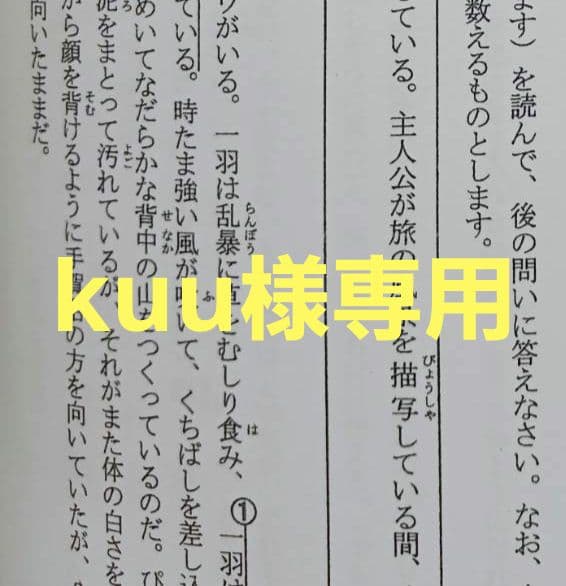 ます）を読んで、後の問いに答えなさい。なお、
数えるものとします。
している。主人公が旅の を描写している間、
びょうしゃ
がいる。一羽は乱暴に むしり食み、①一羽は
らんぼう
は
ている。時たま強い風が いて、くちばしを差し込
ふ
めいてなだらかな背中の山 つくっているのだ。ぴ
せなか
泥をまとって汚れているが、それがまた体の白さを
ろ
よご
がら顔を背けるように手賀 の方を向いていたが、
そむ
向いたままだ。
kuu様専用